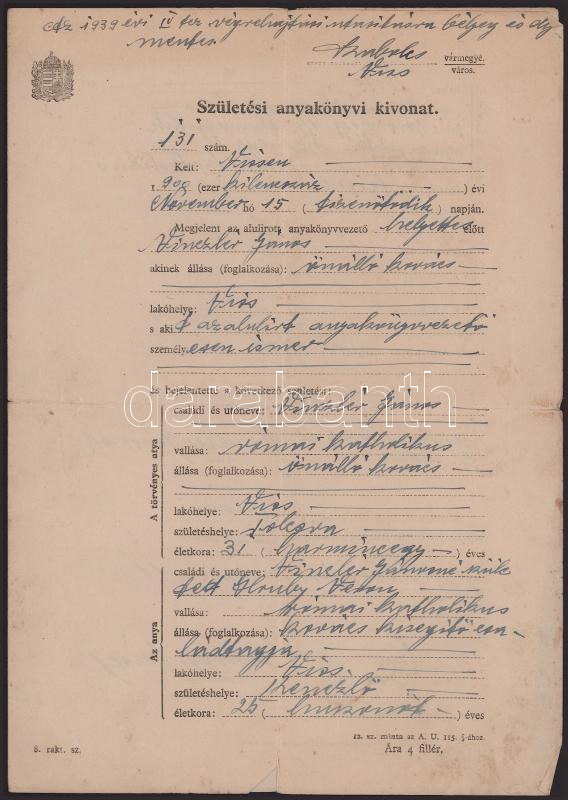 Az 1939 évi IV tcz végrehajtási utasitására bélyeg és díj
mentes.
Szabolcs vármegye.
Viss város.
Születési anyakönyvi kivonat.
131 szám.
Kelt: Vissen
1900 (ezer kilencszáz ) évi
November hó 15 ( tizenötödik ) napján.
Megjelent az alulirott anyakönyvvezető helyettes előtt
Vinczler János
akinek állása (foglalkozása): önálló kovács
lakóhelye: Viss
s aki t azalulirt anyakönyvvezető
személy esen ismer
és bejelentette a következő születést:
A törvényes atya
családi és utóneve: Vinczler János
vallása: római katholikus
állása (foglalkozása): önálló kovács
lakóhelye: Viss
születéshelye: Tolcsva
életkora: 31 ( harmincegy ) éves
Az anya
családi és utóneve: Vinczler Jánosné szüle
tett Hruby Veron
vallása: római katholikus
állása (foglalkozása): kovács kisegitő csa-
ládtagja
lakóhelye: Viss
születéshelye: Kenézlő
életkora: 25 ( huszonöt ) éves
8. rakt. sz.
12. sz. minta az A. U. 115. §-ához.
Ára 4 fillér.
darabanth